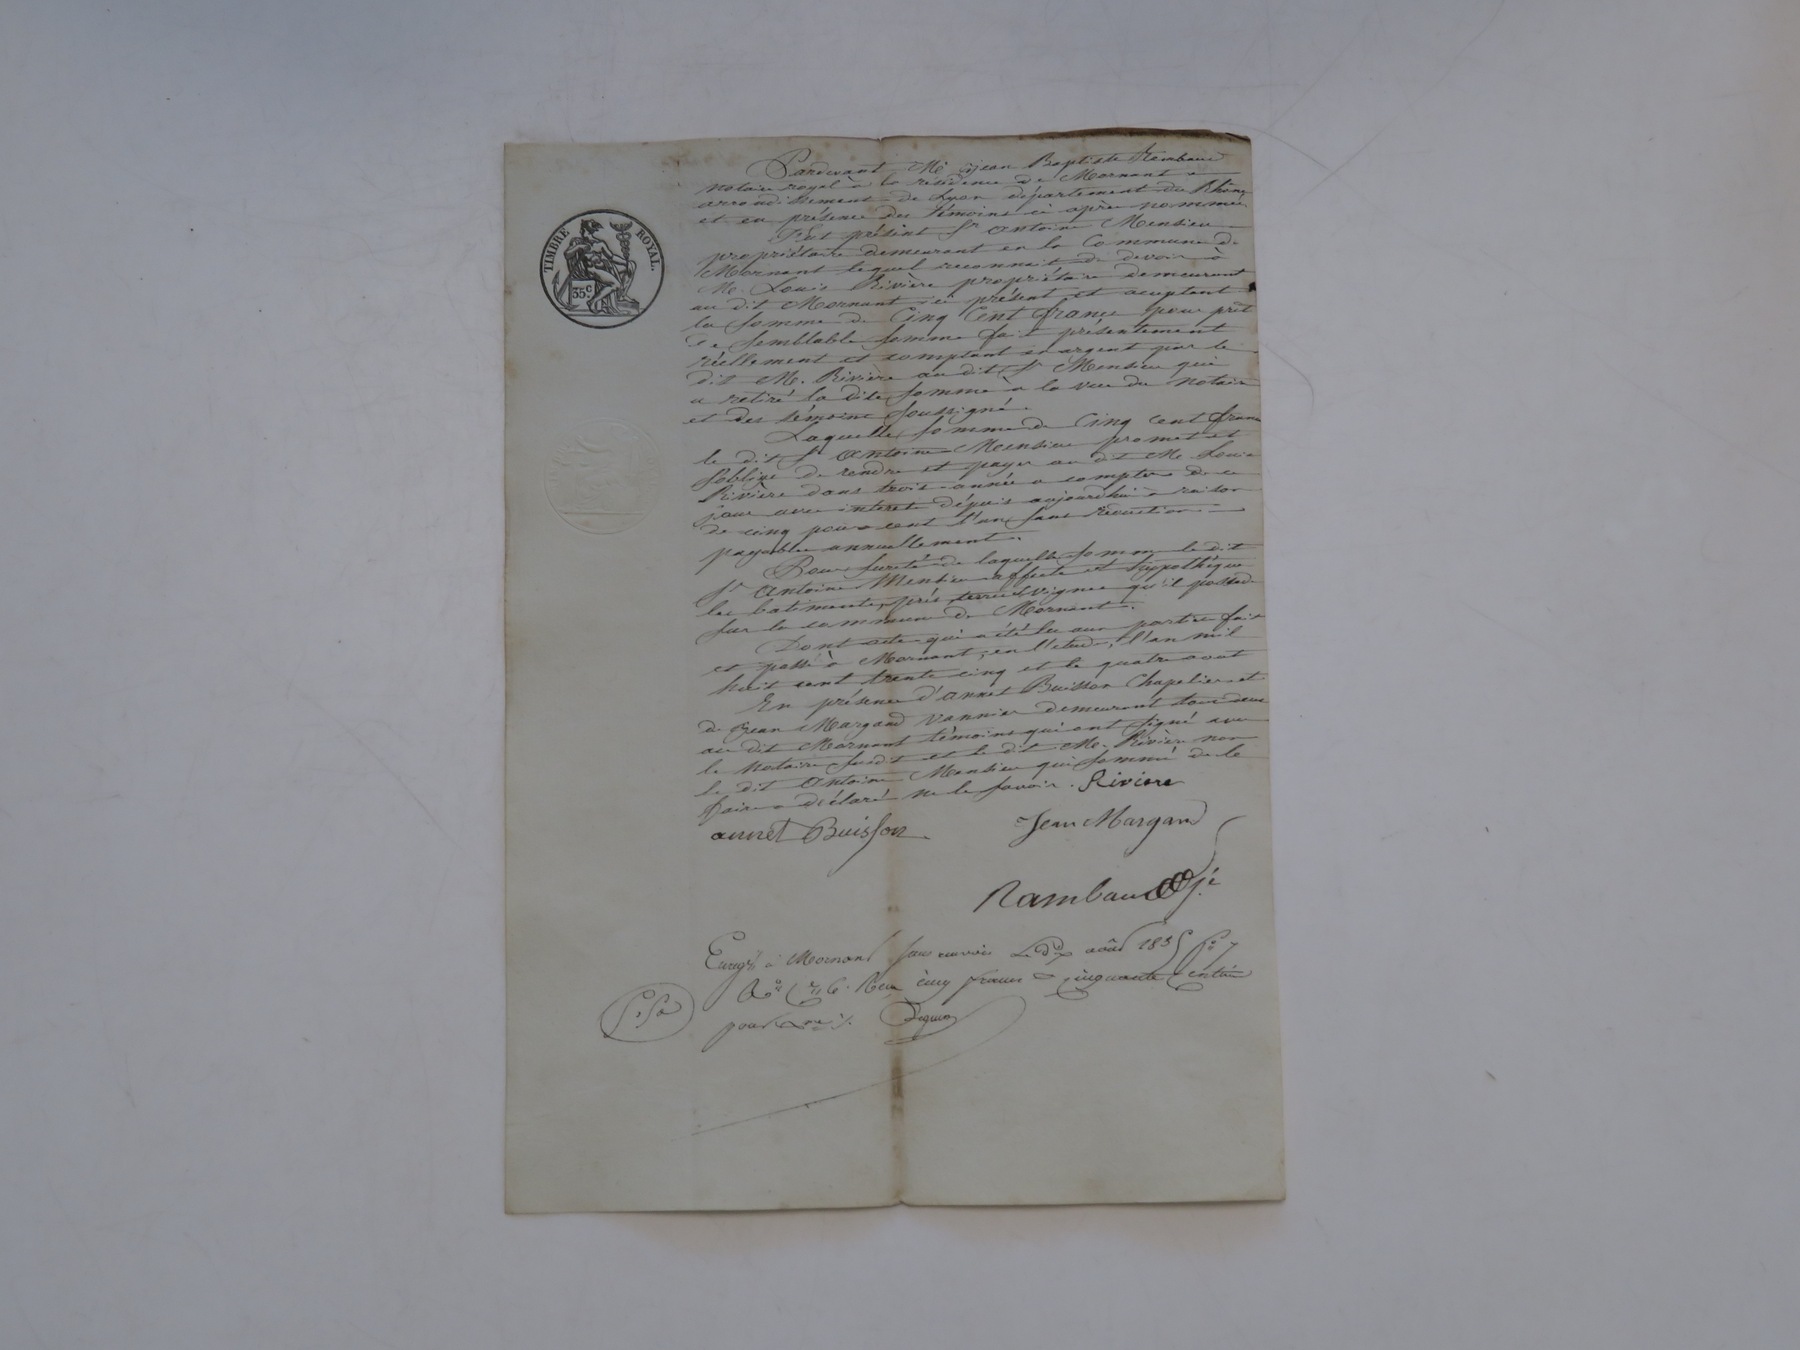 TIMBRE ROYAL.
35c
Pardevant Me Jean Baptiste Rambaud
notaire royal à la résidence de Mornant
arrondissement de Lyon département du Rhône
et en présence des témoins ci après nommés
Fut présent Sr Antoine Mensieu
propriétaire demeurant en la Commune de
Mornant lequel reconnait de devoir à
M. Louis Rivière propriétaire demeurant
au dit Mornant ici présent et acceptant
la somme de Cinq Cent francs pour prêt
de semblable somme fait présentement
réellement et comptant en argent par le
dit M. Rivière au dit Sr Mensieu qui
a retiré la dite somme à la vue du notaire
et des témoins soussigné.
Laquelle somme de Cinq Cent francs
le dit Sr Antoine Mensieu promet et
s'oblige de rendre et payer au dit M. Louis
Rivière dans trois année a compter de ce
jour avec interets dépuis aujourdhui à raison
de cinq pour cent l'an sans rétention
payables annuellement.
Pour sureté de laquelle somme le dit
Sr Antoine Mensieu affecte et hyppothèque
les batiments, prés, terres et vignes qu'il possède
sur la commune de Mornant.
Dont acte qui a été lu aux parties fait
et passé à Mornant, en l'etude, l'an mil
huit cent trente cinq et le quatre aout
En présence d'annet Buisson Chapelier et
de Jean Margand vannier demeurant tous deux
au dit Mornant témoins qui ont signé avec
le notaire susdit et le dit M. Rivière non
le dit Antoine Mensieu qui sommé de le
faire a déclaré ne le savoir. Rivière
annet Buisson
Jean Margand
Rambaud
à Mornant sans renvoi Le dix août 1835 fo 7
Ro cinq francs cinquante centimes
pour